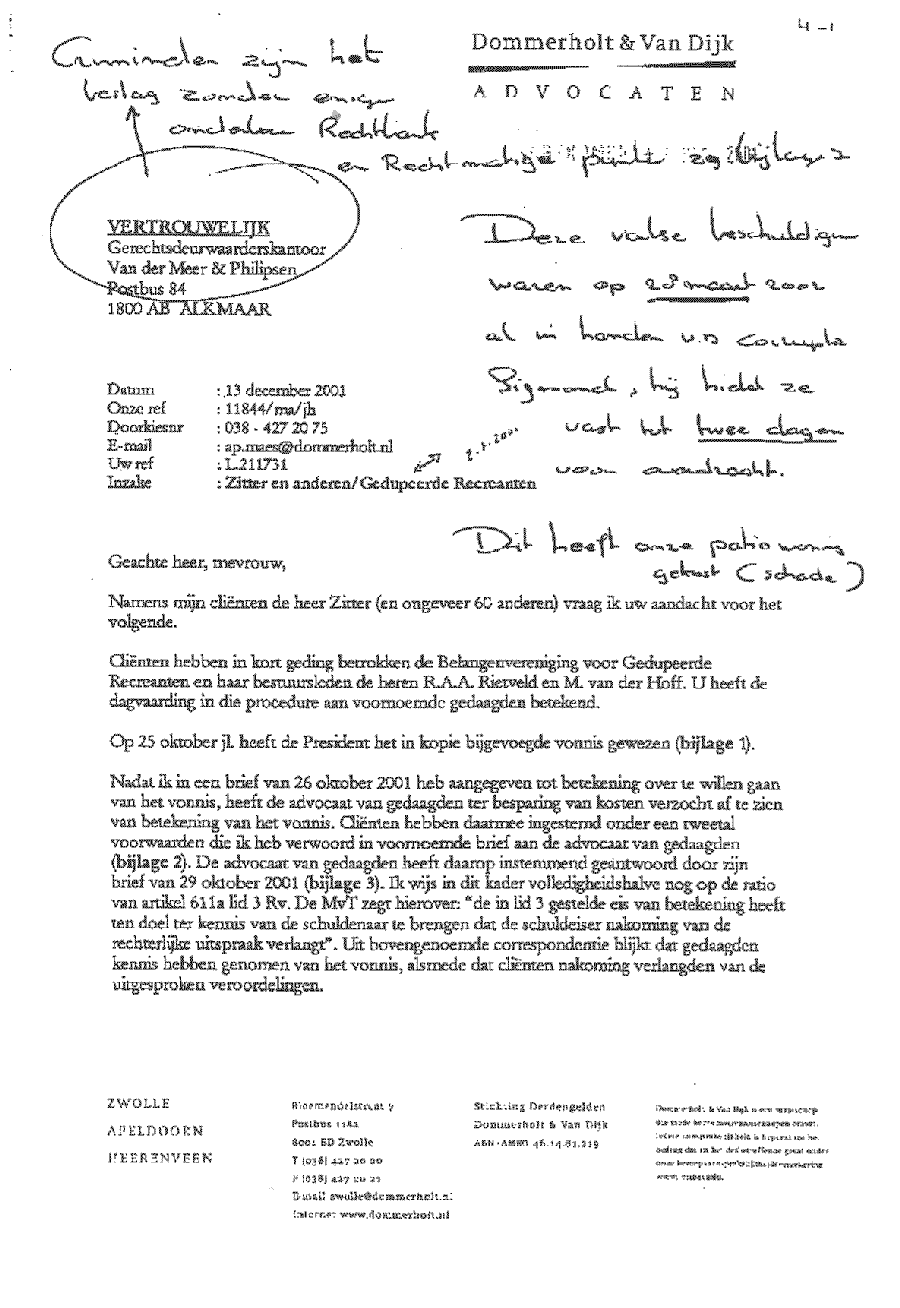 4-1
Dommerholt & Van Dijk
ADVOCATEN
Criminelen zijn het
verlag zonder enige
Rechtbank
en Rechtmatige punten zg bijlage 2
VERTROUWELIJK
Gerechtsdeurwaarderskantoor
Van der Meer & Philipsen
Postbus 84
1800 AB ALKMAAR
Deze valse beschuldigen
waren op 28 maart 2002
al in handen v.d corrupte
Sigmond, hij hield ze
vast tot twee dagen
voor overdracht.
Datum : 13 december 2001
Onze ref : 11844/ma/jh
Doorkiesnr : 038 - 427 20 75
E-mail : ap.maes@dommerholt.nl
Uw ref : L211731
Inzake : Zitter en anderen/Gedupeerde Recreanten
Dit heeft onze patiowoning
gekost (schade)
Geachte heer, mevrouw,
Namens mijn cliënten de heer Zitter (en ongeveer 60 anderen) vraag ik uw aandacht voor het
volgende.
Cliënten hebben in kort geding betrokken de Belangenvereniging voor Gedupeerde
Recreanten en haar bestuursleden de heren R.A.A. Rietveld en M. van der Hoff. U heeft de
dagvaarding in die procedure aan voornoemde gedaagden betekend.
Op 25 oktober jl. heeft de President het in kopie bijgevoegde vonnis gewezen (bijlage 1).
Nadat ik in een brief van 26 oktober 2001 heb aangegeven tot betekening over te willen gaan
van het vonnis, heeft de advocaat van gedaagden ter besparing van kosten verzocht af te zien
van betekening van het vonnis. Cliënten hebben daarmee ingestemd onder een tweetal
voorwaarden die ik heb verwoord in voornoemde brief aan de advocaat van gedaagden
(bijlage 2). De advocaat van gedaagden heeft daarop instemmend geantwoord door zijn
brief van 29 oktober 2001 (bijlage 3). Ik wijs in dit kader volledigheidshalve nog op de ratio
van artikel 611a lid 3 Rv. De MvT zegt hierover: “de in lid 3 gestelde eis van betekening heeft
ten doel ter kennis van de schuldenaar te brengen dat de schuldeiser nakoming van de
rechterlijke uitspraak verlangt”. Uit bovengenoemde correspondentie blijkt dat gedaagden
kennis hebben genomen van het vonnis, alsmede dat cliënten nakoming verlangden van de
uitgesproken veroordelingen.
ZWOLLE
APELDOORN
HEERENVEEN
Bloemendalstraat 7
Postbus 1182
8001 BD Zwolle
T (038) 427 20 20
F (038) 427 20 21
E-mail zwolle@dommerholt.nl
Internet www.dommerholt.nl
Stichting Derdengelden
Dommerholt & Van Dijk
ABN-AMRO 46.14.81.219
Dommerholt & Van Dijk is een